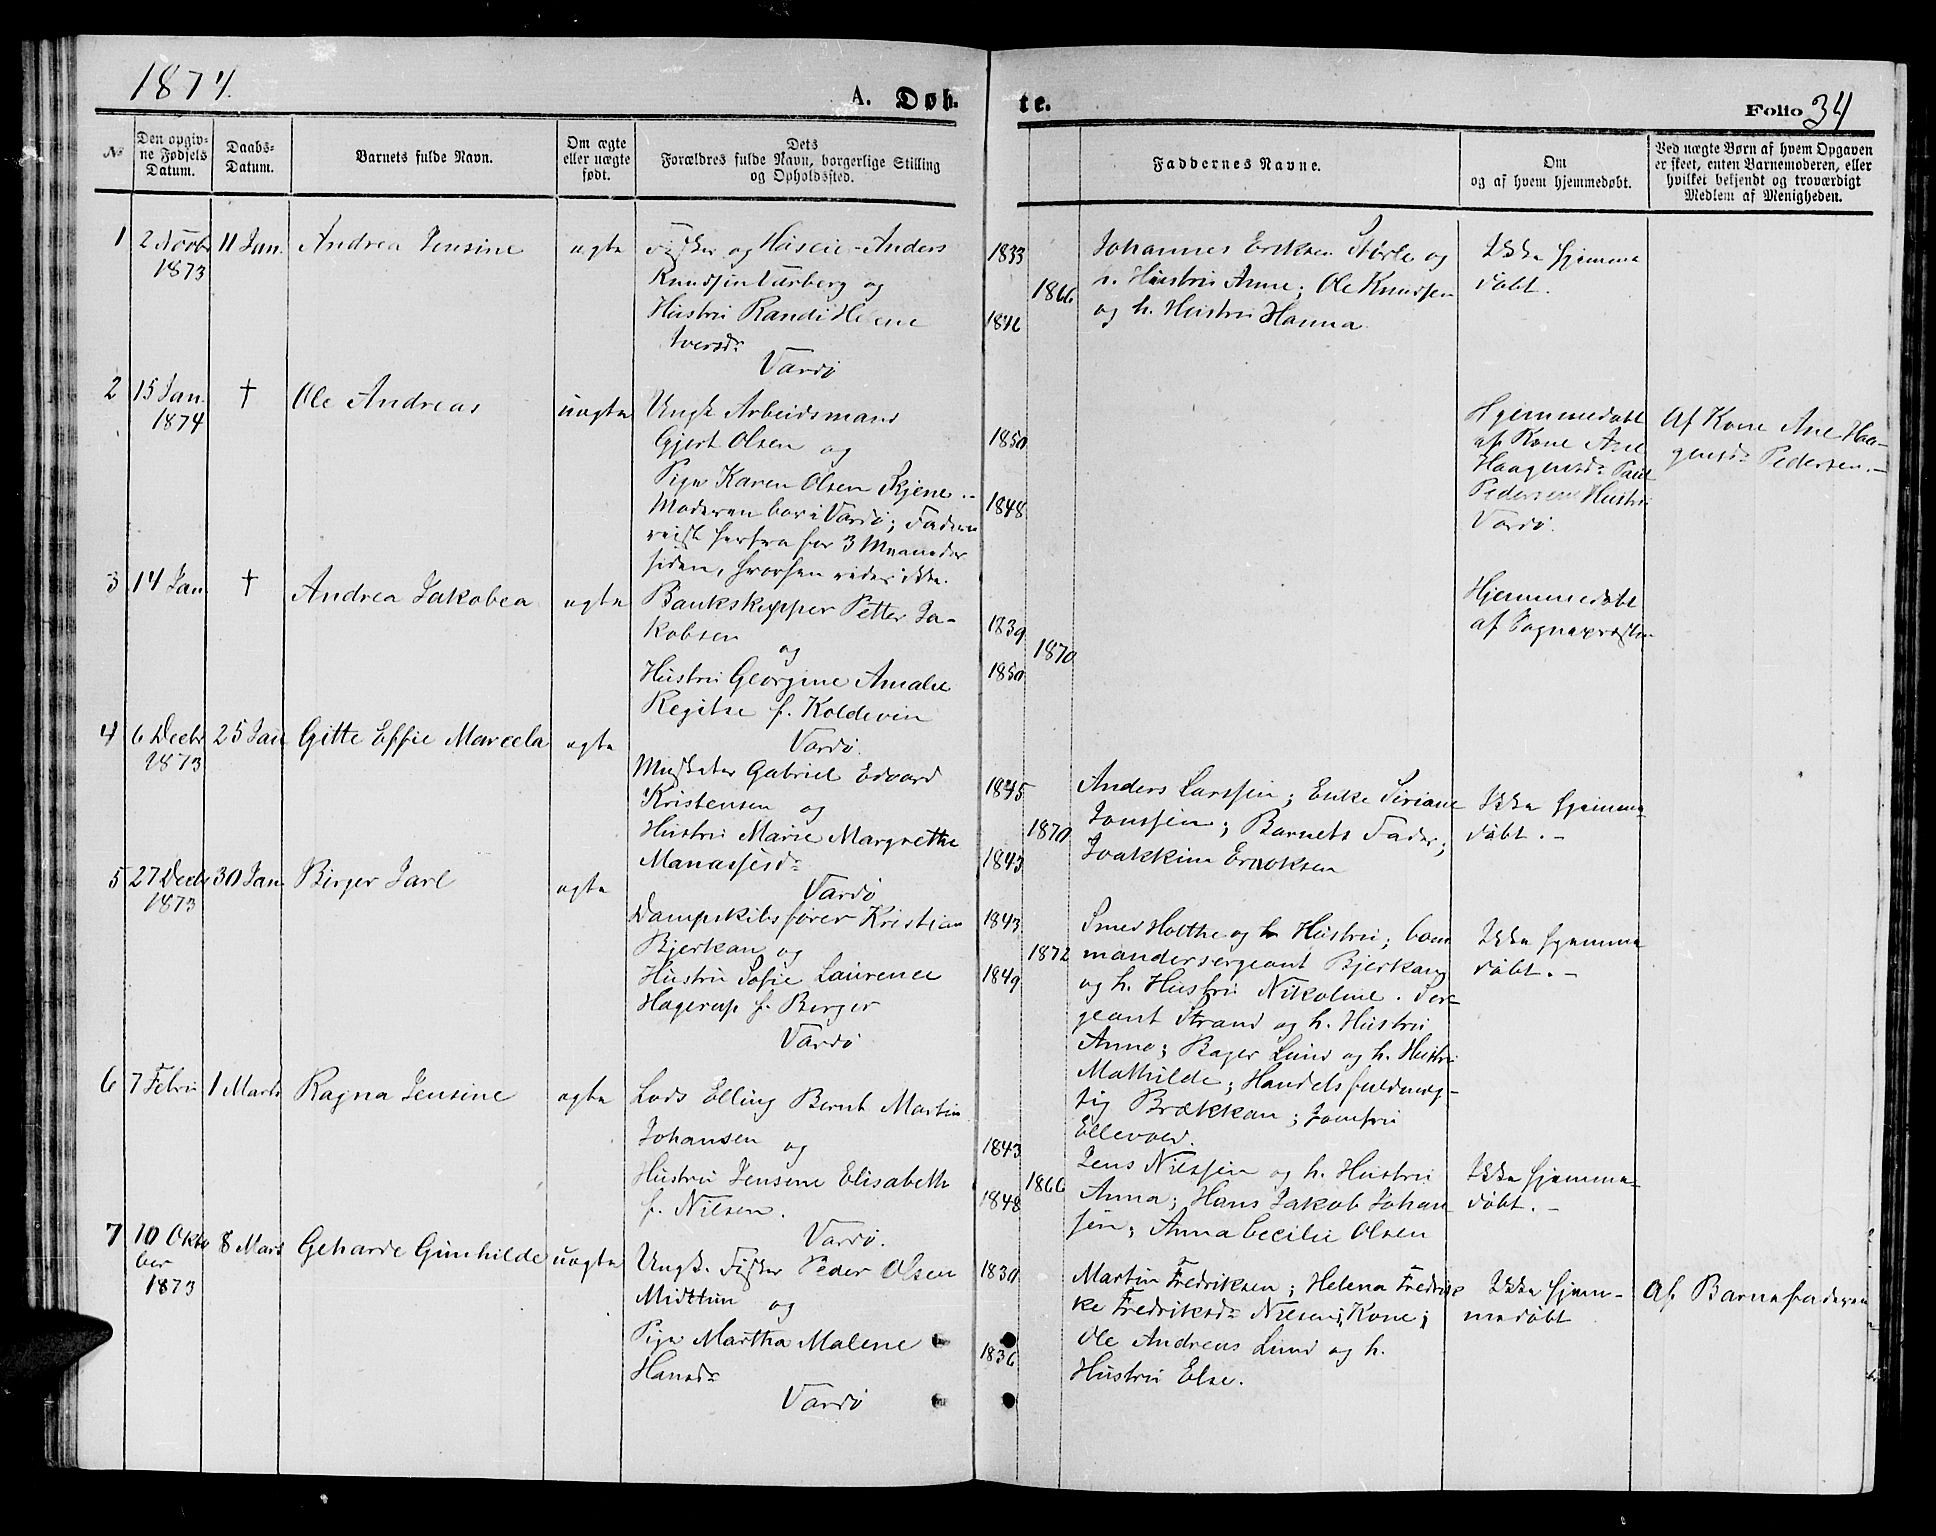 1874.
A. Døb-
te.
Folio 34
No
Den opgiv-
ne Fødsels
Datum.
Daabs-
Datum.
Barnets fulde Navn.
Om ægte
eller uægte
født.
Dets
Forældres fulde Navn, borgerlige Stilling
og Opholdssted.
Faddernes Navne.
Om
og af hvem hjemmedøbt.
Ved uægte Børn af hvem Opgaven
er skeet, enten Barnemoderen, eller
hvilket bekjendt og troværdigt
Medlem af Menigheden.
1
2 Novbr
1873
11 Jan.
Andrea Jensine
ægte
Fisker og Huseier Anders
Knudsen Varberg og
Hustru Randi Helene
Iversdr
Vardø
1833
1866
1846
Johannes Eriksen Størle og
h. Hustru Anne; Ole Knudsen
og h. Hustru Hanna
Ikke hjemme
døbt.
2
15 Jan.
1874
†
Ole Andreas
uægte
Ungk. Arbeidsmand
Gjert Olsen og
Pige Karen Olsen Skjene..
Moderen bor i Vardø; Faderen
reist herfra for 3 Maaneder
siden, hvorhen vides ikke.
1850
1848
Hjemmedøbt
af Kone Ane
Haagensdr Paul
Pedersens Hustru
Vardø.
Af Kone Ane Haa-
gensdr Pedersen.-
3
14 Jan.
†
Andrea Jakobea
ægte
Bankskipper Petter Ja-
kobsen
og
Hustru Georgine Amalie
Regitze f. Koldevin
Vardø.
1839
1870
1850
Hjemmedøbt
af Sognepræsten
4
6 Decbr
1873
25 Jan
Gitte Effie Marcela
ægte
Musketer Gabriel Edvard
Kristensen og
Hustru Marie Margrethe
Manassesdr
Vardø
1845
1870
1843
Anders Larssen; Enke Siriane
Jonssen; Barnets Fader;
Joakkim Enoksen
Ikke hjemme-
døbt.-
5
27 Decbr
1873
30 Jan.
Birger Jarl
ægte
Dampskibsfører Kristian
Bjerkan og
Hustru Sofie Laurence
Hagerup f. Berger
Vardø
1843
1872
1849
Smed Holthe og h Hustru; Com
mandersergeant Bjerkan
og h. Hustru Nikoline. Ser-
geant Strand og h. Hustru
Anne; Bager Lund og h. Hustru
Mathilde; Handelsfuldmæg-
tig Brækkan; Jomfru
Ellevold.
Ikke hjemme
døbt.-
6
7 Febru
1 Marts
Ragna Jensine
ægte
Lods Elling Bernt Martin
Johansen og
Hustru Jensine Elisabeth
f. Nilsen.
Vardø.
1843
1866
1848
Jens Nilssen og h. Hustru
Anna; Hans Jakob Johan
sen; Anna Cecilie Olsen
Ikke hjemme-
døbt.-
7
10 Okto
ber
1873
8 Marts
Geharde Gunhilde
uægte
Ungk. Fisker Peder Olsen
Midttun og
Pige Martha Malene
Hansdr
Vardø
1830
1836
Martin Fredriksen; Helena Fredrik
ke Fredriksdr Nilsen, Kone;
Ole Andreas Lund og h.
Hustru Else.
Ikke hjem-
medøbt
Af Barnefaderen